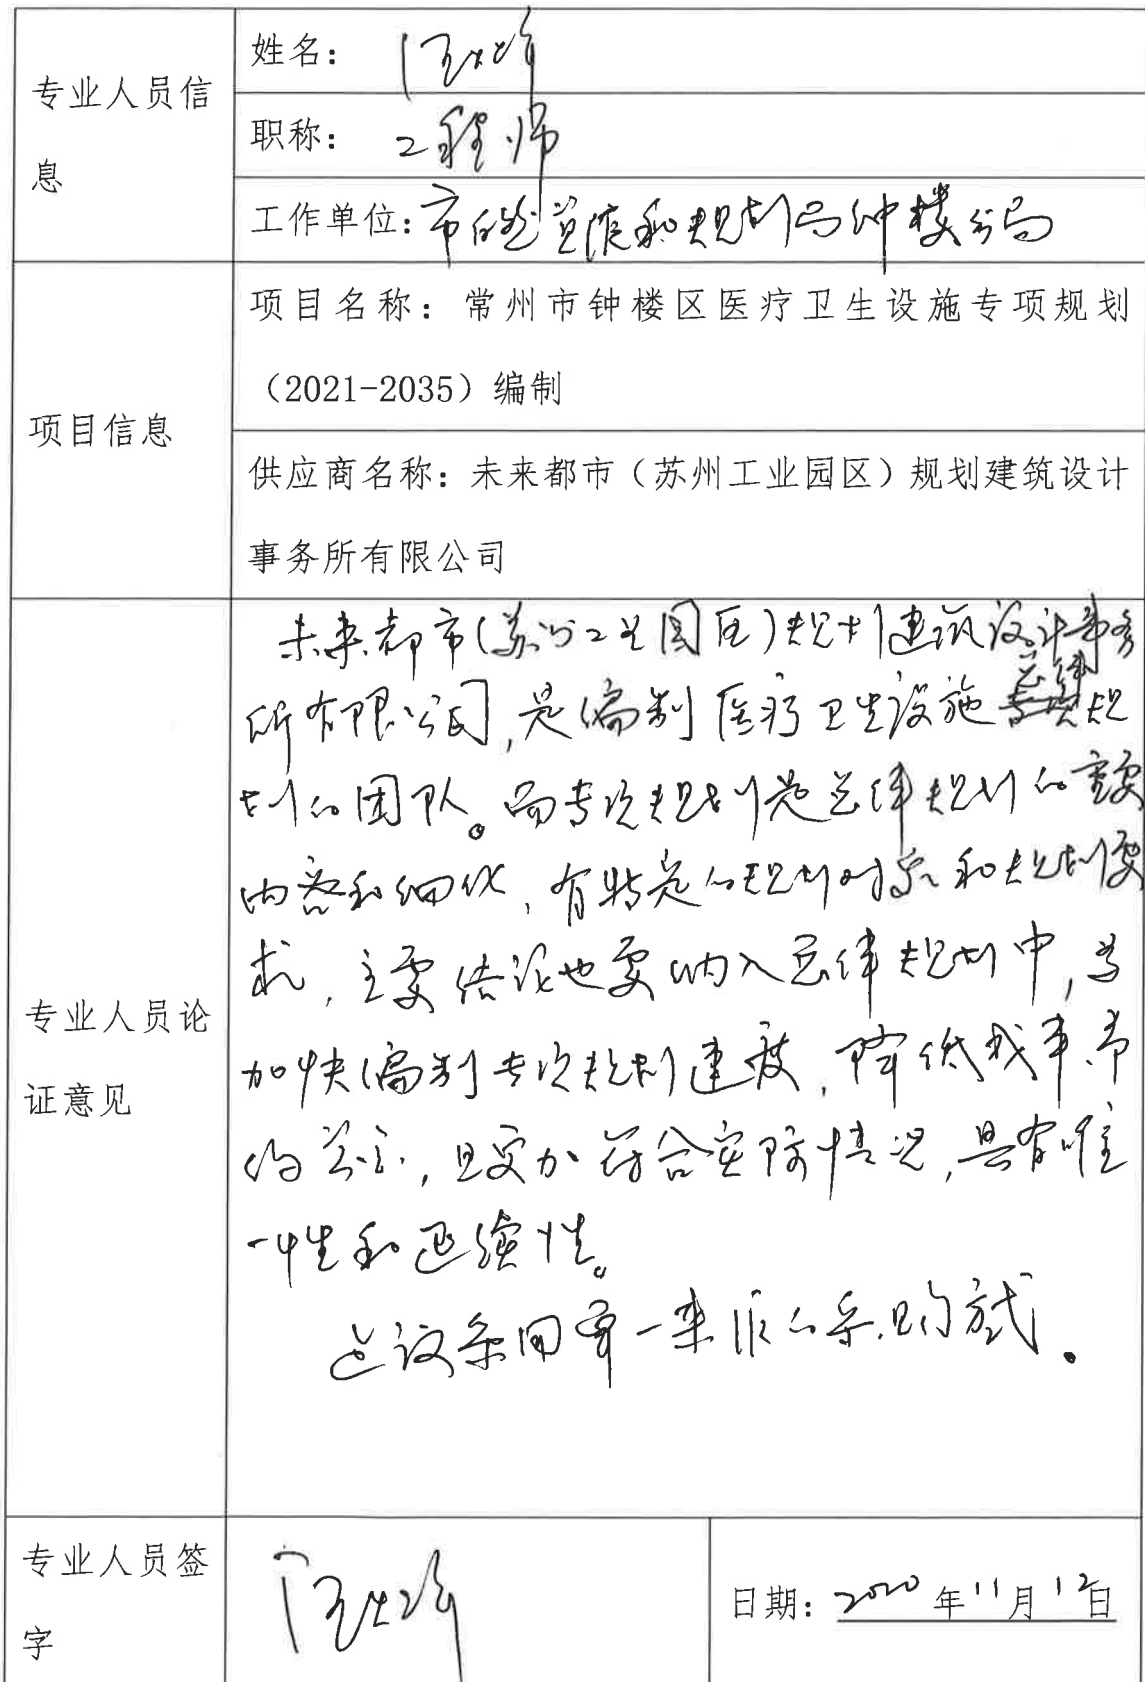 专业人员信
息
姓名：
职称：工程师
工作单位：市自然资源和规划局钟楼分局
项目信息
项目名称：常州市钟楼区医疗卫生设施专项规划
（2021-2035）编制
供应商名称：未来都市（苏州工业园区）规划建筑设计
事务所有限公司
专业人员论
证意见
未来都市(苏州工业园区)规划建筑设计事务
所有限公司,是编制医疗卫生设施总体规
划的团队。而专项规划是总体规划的重要
内容和细化,有特定的规划对象和规划要
求,主要结论也要纳入总体规划中,为
加快编制专项规划速度,降低成本、
,且更加符合实际情况,具有唯
一性和延续性。
建议采用单一来源的采购方式。
专业人员签
字
日期：2020年11月12日